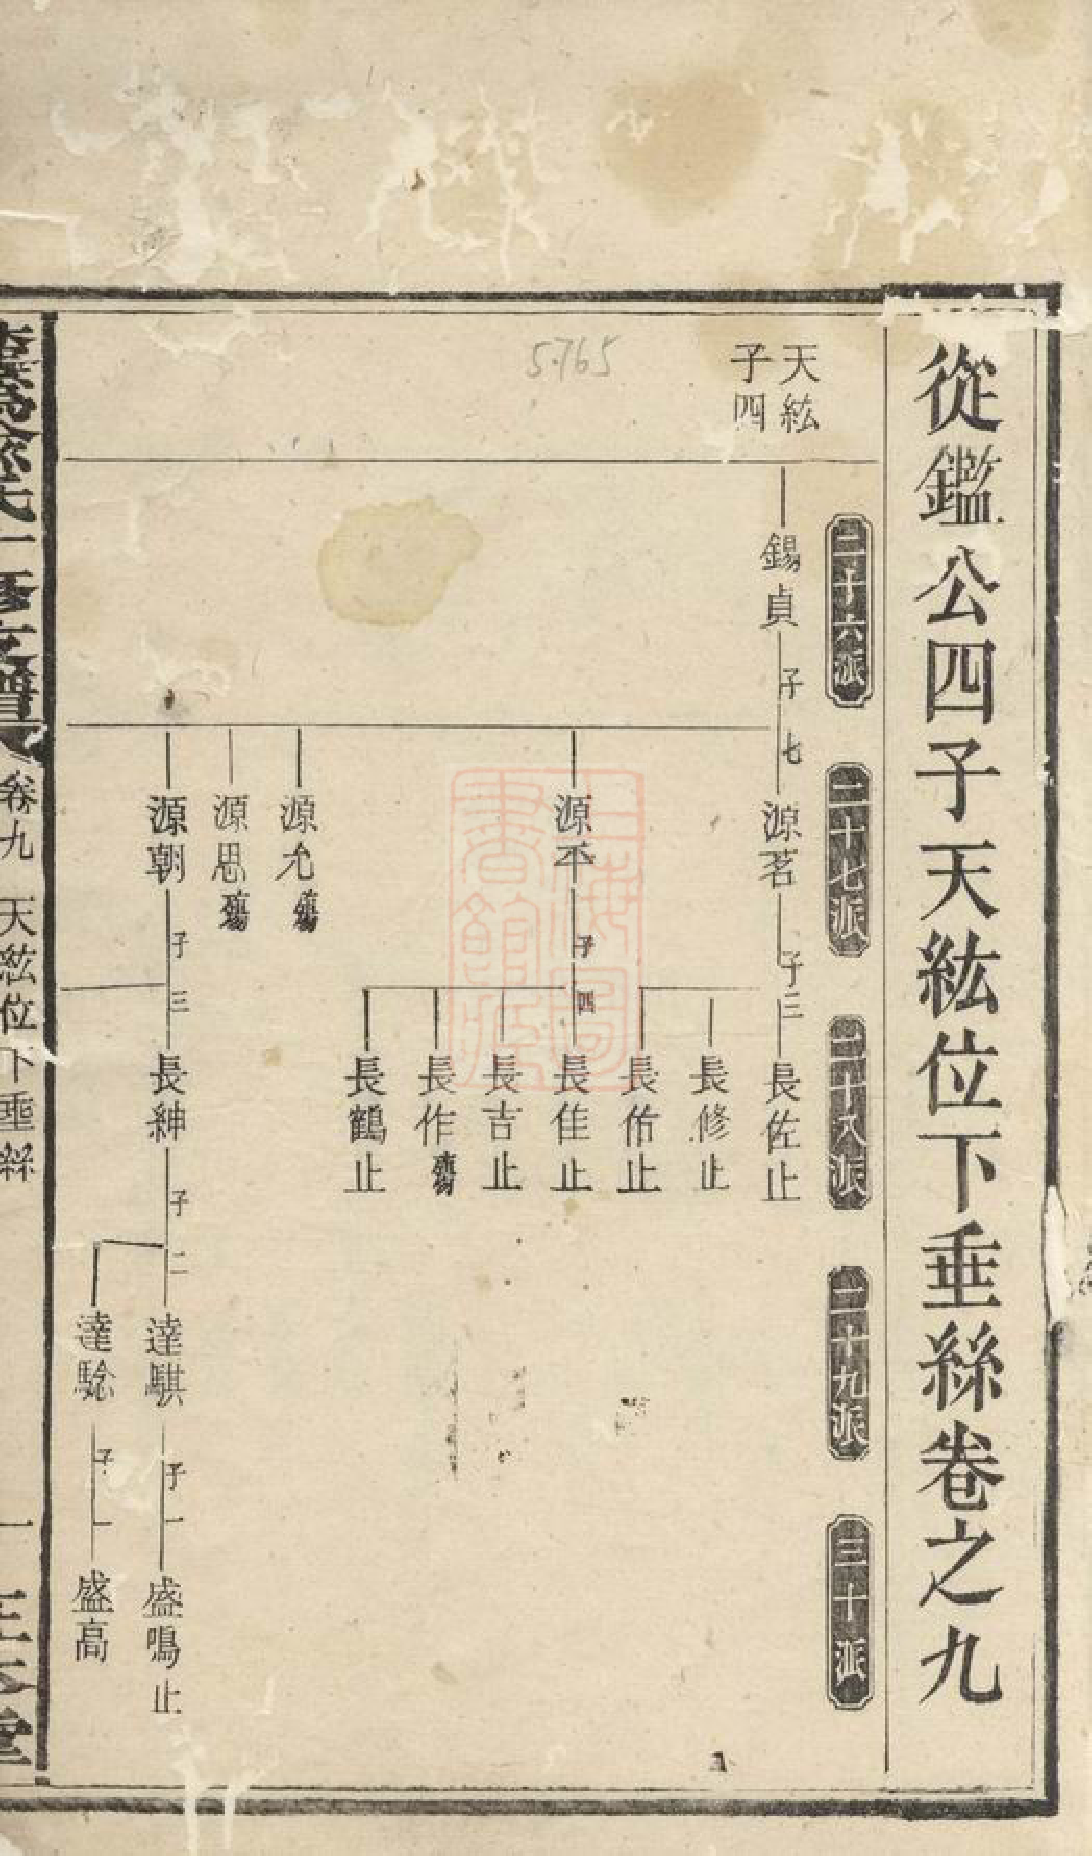 從鑑公四子天紘位下垂絲卷之九
二十六派
二十七派
二十八派
二十九派
三十派
天紘
子四
錫貞 子七 源茗 子三 長佐止
長修止
長佑止
源丕 子四 長佳止
長吉止
長作殤
長鶴止
源允殤
源思殤
源朝 子三 長紳 子二 達騏 子一 盛鳴止
達騐 子一 盛高
卷九 天紘位下垂絲 一
5.765
上海圖書館藏